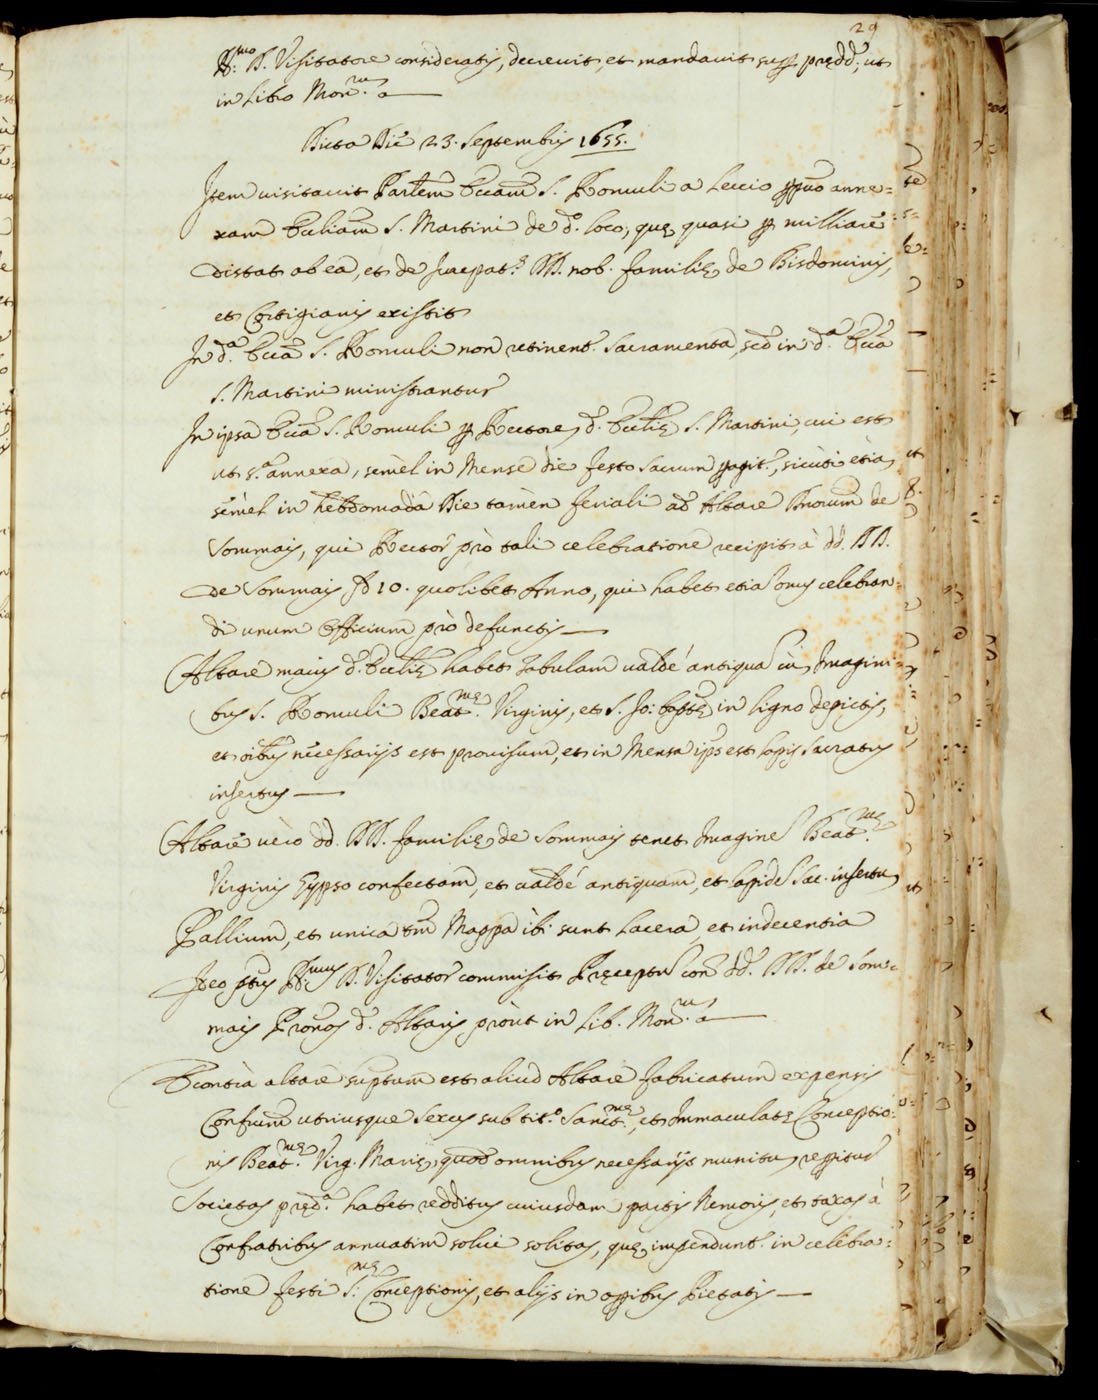 29
Ill.mo D. Visitatore consideratis, decrevit, et mandavit supra prędd., ut
in Libro Mon.rum a
Dicta Die 23. Septembris 1655.
Item visitavit Parlem Ecclam S. Romuli a Leccio perpuo anne=
xam Eccliam S. Martini de d.o loco, quę quasi per milliare
distat ab ea, et de Jurepat.s DD. nob. familię de Bisdominis,
et Cortigianis existit
In d.a Ecca S. Romuli non retinent.r Sacramenta, sed in d.a Ecca
S. Martini ministrantur
In ipsa Ecca S. Romuli per Rectore, d. Ecclię S. Martini, cui est
ut s.a annexa, semel in Mense die festo Sacrum peragit.r, sicuti etia,
semel in hebdomada Die tamen feriali ad Altare Dnorum de
Sommais, qui Rector pro tali celebratione recipit à dd. DD.
de Sommais s 10. quolibet Anno, qui habet etia onus celebran=
di unum Officium pro defunctis
Altare maius d. Ecclię habet Tabulam valdé antiqua cu, Imagini=
bus S. Romuli Beat.mę Virginis, et S. Jo: Bapttę in ligno depictis,
et oibus necessarijs est provisum, et in Mensa ips est lapis Sacratus
insertus
Altare vero dd. DD. familię, de Sommais tenet Imagine Beat.mę
Virginis Gypso confectam, et valdé antiquam, et lapide Sac. insertu,
Pallium, et unica tm Mappa ibi sunt lacera, et indecentia
Ideo ptus Ill.mus D. Visitator commisit Pręceptu con dd. DD. de Som=
mais Pronos d. Altaris prout in Lib. Mon.rum a
Econtra altare suptum est aliud Altare fabricatum expensis
Confrum utriusque Sexus sub tit.o Sanct.mę, et Immaculatę Conceptio=
nis Beat.mę Virg. Marię, quod omnibus necessarijs munitu, reppitur
Societas pręd.a habet redditus cuiusdam partis Nemoris, et taxas à
Confratribus annuatim solui solitas, quę impendunt.r in celebra=
tione festi S.mę Conceptionis, et alijs in oppibus Pietatis